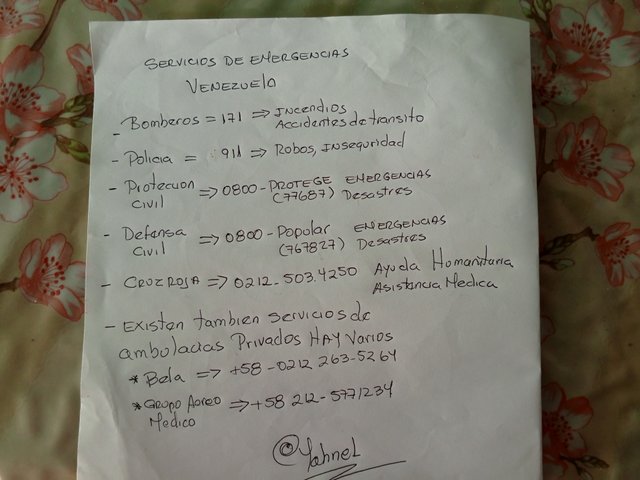 SERVICIOS DE EMERGENCIAS
VENEZUELA
- Bomberos = 171 => INCENDIOS
Accidentes de transito
- Policia = 911 => Robos, INSEGURIDAD
- Proteccion => 0800-PROTEGE EMERGENCIAS
Civil (77687) Desastres
- Defensa => 0800-Popular EMERGENCIAS
Civil (767827) Desastres
- CRUZ ROJA => 0212-503.4250 Ayuda Humanitaria
Asistencia Medica
- EXISTEN tambien servicios de
ambulacias Privados HAY Varios
* Bela => +58-0212 263-5264
* GRUPO Aereo => +58 212-5771234
Medico
@Yahnel